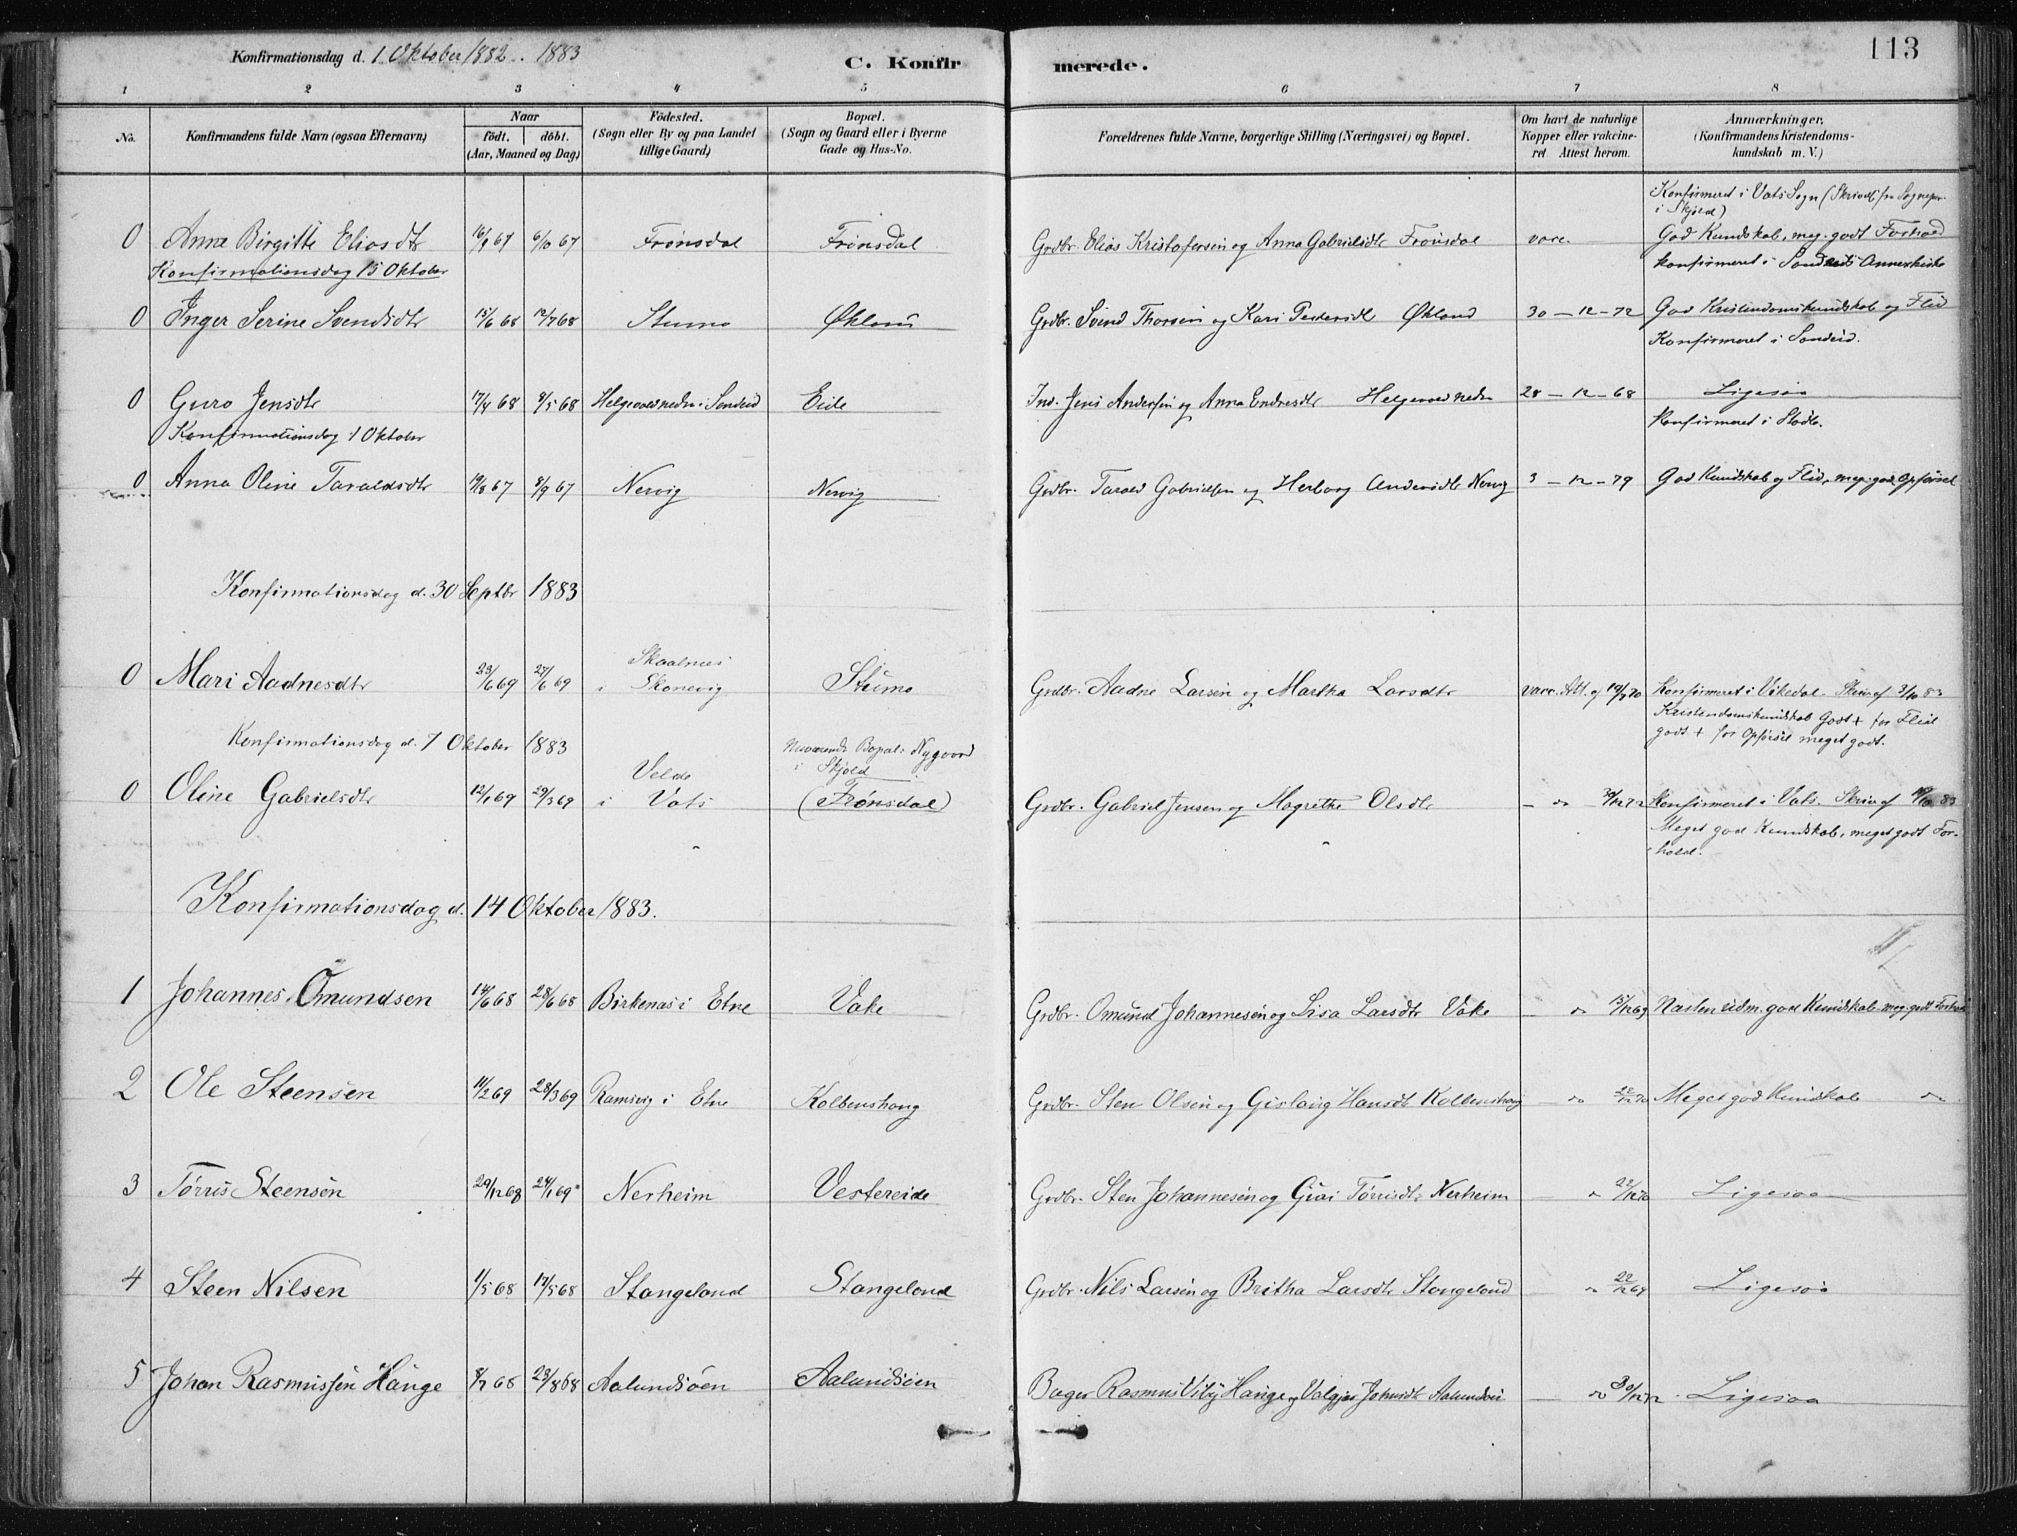 Konfirmationsdag d. 1 Oktober 1882. 1883
C. Konfirmerede.
113
1 2 3 4 5 6 7 8
No.
Konfirmandens fulde Navn (ogsaa Efternavn)
Naar
födt. döbt.
(Aar, Maaned og Dag)
Födested.
(Sogn eller By og paa Landet
tillige Gaard)
Bopæl.
(Sogn og Gaard eller i Byerne
Gade og Hus-No.
Forældrenes fulde Navne, borgerlige Stilling (Næringsvei) og Bopæl.
Om havt de naturlige
Kopper eller vakcine-
ret Attest herom.
Anmærkninger.
(Konfirmandens Kristendoms-
kundskab m. V.)
Konfirmeret i Vats Sogn
i Skjold)
0 Anna Birgitte Eliasdtr 6/10 67 Frønsdal Frønsdal Grdbr. Elias Kristofersen og Anna Gabrielsdtr Frønsdal vacc. God Kundskab, meg. godt Forhold
Konfirmationsdag 15 Oktober
konfirmeret i Sandeid Annexkirke
0 Inger Serine Svendsdtr 15/6 68 12/7 68 Stumo Økland Grdbr. Svend Thorsen og Kari Pedersdtr Økland 30 – 12 – 72 God Kristendomskundskab og Flid
Konfirmeret i Sandeid.
0 Guro Jensdtr 17/4 68 Helgevold nedre i Sandeid Eide Ind. Jens Andersen og Anna Endresdtr Helgevold nedre 28 – 12 – 68 Ligesaa
Konfirmationsdag 1 Oktober
konfirmeret i Stødle.
0 Anna Oline Taraldsdtr 8/9 67 Nervig Nervig Grdbr. Tarald Gabrielsen og Herborg Andersdtr Nervig 3 – 12 – 79 God Kundskab og Flid, meg. god Opførsel
Konfirmationsdag d. 30 Septbr 1883
0 Mari Aadnesdtr 23/6 69 27/6 69 Skaalnes
i Skonevig Stumo Grdbr. Aadne Larsen og Martha Larsdtr vacc. Att. af Konfirmeret i Vikedal. Skriv af 3/10 83
Kristendomskundskab Godt + for Flid
godt + for Opførsel meget godt.
Konfirmationsdag d. 7 Oktober 1883
0 Oline Gabrielsdtr 12/1 69 29/3 69 Velde
i Vats Nuværende Bopæl: Nygaard
i Skjold
(Frønsdal) Grdbr. Gabriel Jensen og Magrethe Olsdtr – " Konfirmeret i Vats. Skriv af
Meget god Kundskab, meget godt For-
hold.
Konfirmationsdag d. 14 Oktober 1883.
1 Johannes Omundsen 14/6 68 28/6 68 Birkenæs i Etne Vake Grdbr. Omund Johannesen og Lisa Larsdtr Vake – " 15/12 69 Næsten udm. god Kundskab meg. godt Forhold
2 Ole Steensen 11/2 69 28/3 69 Ramsvig i Etne Kolbenshaug Grdbr. Sten Olsen og Gislaug Hansdtr Kolbenshaug – " 22/12 70 Meget god Kundskab "
3 Tørris Steensen 29/12 68 24/1 69 Nerheim Vestereide Grdbr. Sten Johannesen og Guri Tørrisdtr Nerheim – " 22/12 70 Ligesaa
4 Steen Nilsen 1/5 68 17/5 68 Stangeland Stangeland Grdbr. Nils Larsen og Britha Larsdtr Stangeland – " 22/12 69 Ligesaa
5 Johan Rasmussen Hauge 8/7 68 23/8 68 Aalundsøen Aalundsøen Bager Rasmus Hauge og Valgjer Johnsdtr Aalundsøen – " 30/12 72 Ligesaa